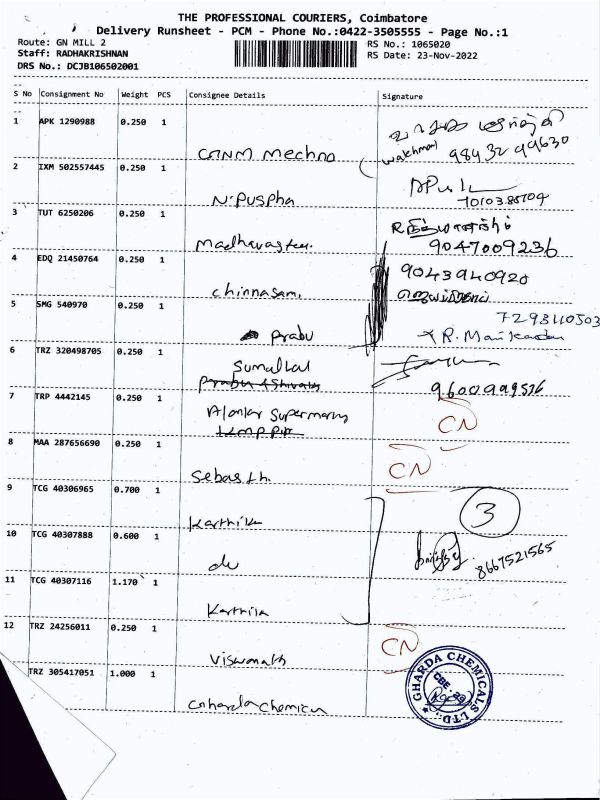 THE PROFESSIONAL COURIERS, Coimbatore
Delivery Runsheet - PCM - Phone No.:0422-3505555 - Page No.:1
Route: GN MILL 2
RS No.: 1065020
Staff: RADHAKRISHNAN
RS Date: 23-Nov-2022
DRS No.: DCJB106502001
S No Consignment No Weight PCS Consignee Details Signature
1 APK 1290988 0.250 1
GNM Mechno
watchman 98432 99630
2 IXM 502557445 0.250 1
N. Puspha
3 TUT 6250206 0.250 1
9047009236
4 EDQ 21450764 0.250 1
9043940920
Chinnasam
5 SMG 540970 0.250 1
7298110503
Prabu
R. Manikandan
6 TRZ 320498705 0.250 1
9600999526
7 TRP 4442145 0.250 1
CN
8 MAA 287656690 0.250 1
CN
9 TCG 40306965 0.700 1
Karthik
3
10 TCG 40307888 0.600 1
do
8667521565
11 TCG 40307116 1.170 1
Karthik
12 TRZ 24256011 0.250 1
CN
Viswanath
TRZ 305417051 1.000 1
Gharda Chemicu
GHARDA CHEMICALS LTD.,
CBE - 29